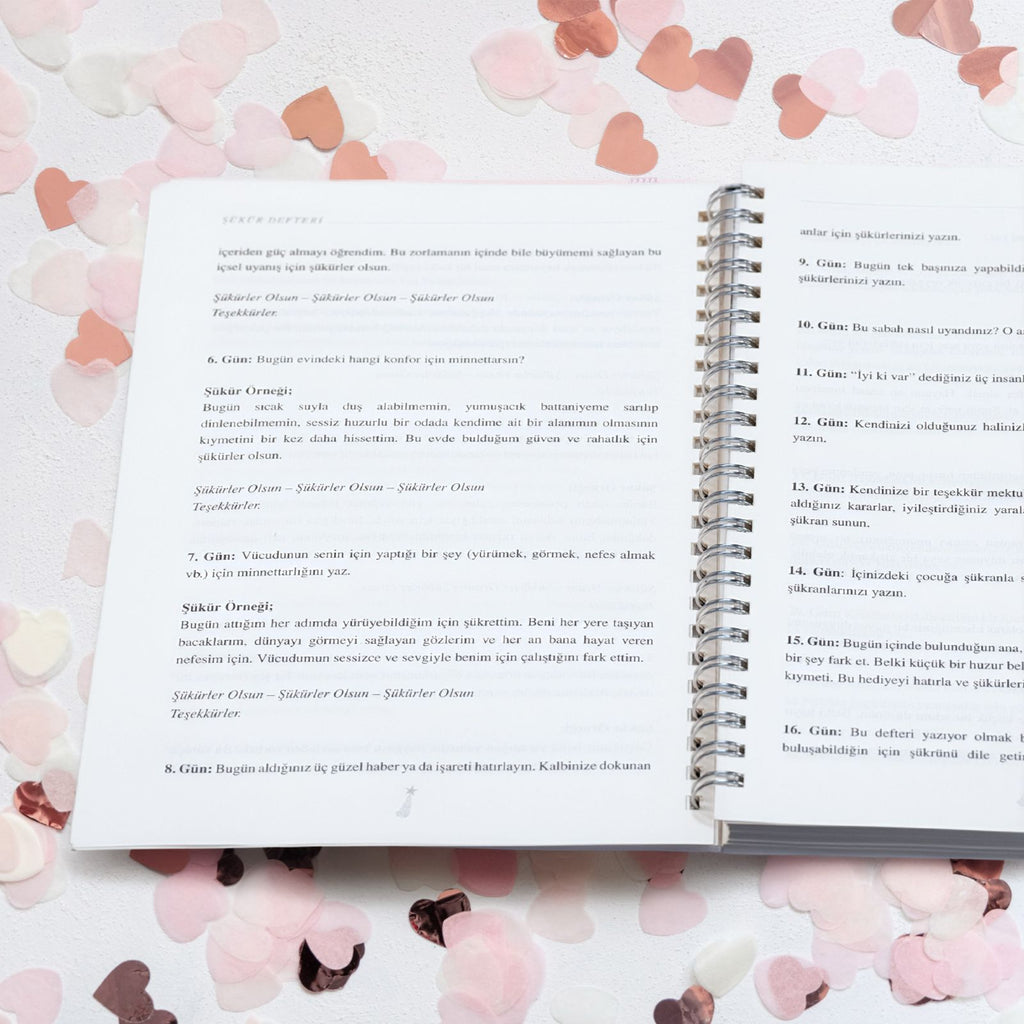 ŞÜKÜR DEFTERİ
içeriden güç almayı öğrendim. Bu zorlamanın içinde bile büyümemi sağlayan bu
içsel uyanış için şükürler olsun.
Şükürler Olsun – Şükürler Olsun – Şükürler Olsun
Teşekkürler.
6. Gün: Bugün evindeki hangi konfor için minnettarsın?
Şükür Örneği;
Bugün sıcak suyla duş alabilmemin, yumuşacık battaniyeme sarılıp
dinlenebilmemin, sessiz huzurlu bir odada kendime ait bir alanımın olmasının
kıymetini bir kez daha hissettim. Bu evde bulduğum güven ve rahatlık için
şükürler olsun.
Şükürler Olsun – Şükürler Olsun – Şükürler Olsun
Teşekkürler.
7. Gün: Vücudunun senin için yaptığı bir şey (yürümek, görmek, nefes almak
vb.) için minnettarlığını yaz.
Şükür Örneği;
Bugün attığım her adımda yürüyebildiğim için şükrettim. Beni her yere taşıyan
bacaklarım, dünyayı görmeyi sağlayan gözlerim ve her an bana hayat veren
nefesim için. Vücudumun sessizce ve sevgiyle benim için çalıştığını fark ettim.
Şükürler Olsun – Şükürler Olsun – Şükürler Olsun
Teşekkürler.
8. Gün: Bugün aldığınız üç güzel haber ya da işareti hatırlayın. Kalbinize dokunan
anlar için şükürlerinizi yazın.
9. Gün: Bugün tek başınıza yapabildi
şükürlerinizi yazın.
10. Gün: Bu sabah nasıl uyandınız? O a
11. Gün: “İyi ki var” dediğiniz üç insan
12. Gün: Kendinizi olduğunuz halinizl
yazın.
13. Gün: Kendinize bir teşekkür mektu
aldığınız kararlar, iyileştirdiğiniz yaral
şükran sunun.
14. Gün: İçinizdeki çocuğa şükranla s
şükranlarınızı yazın.
15. Gün: Bugün içinde bulunduğun ana,
bir şey fark et. Belki küçük bir huzur bel
kıymeti. Bu hediyeyi hatırla ve şükürleri
16. Gün: Bu defteri yazıyor olmak b
buluşabildiğin için şükrünü dile geti